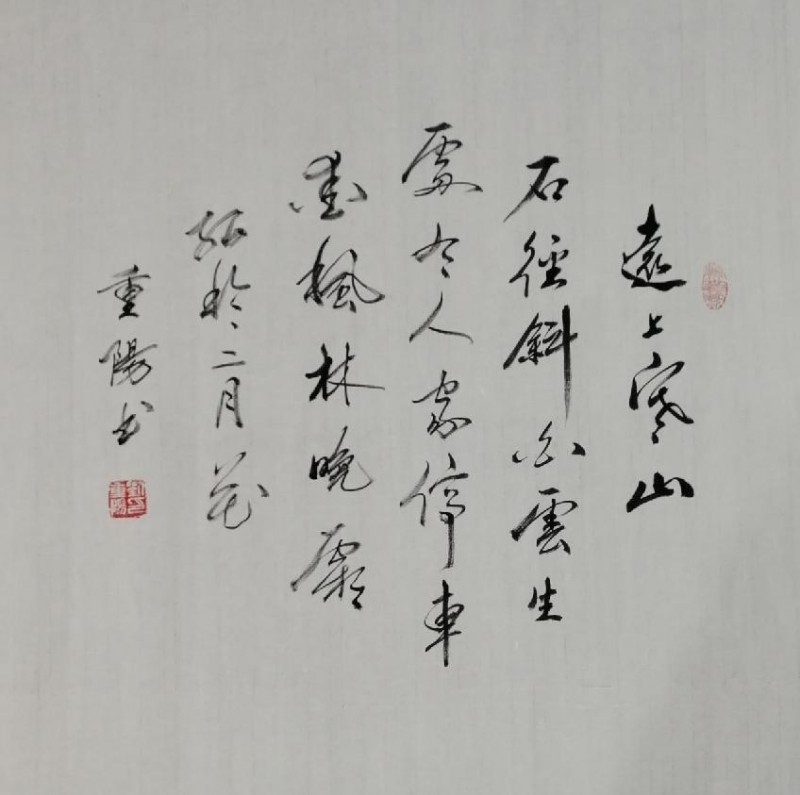 遠上寒山
石徑斜白雲生
處有人家停車
愛楓林晚霜
紅於二月花
重陽书